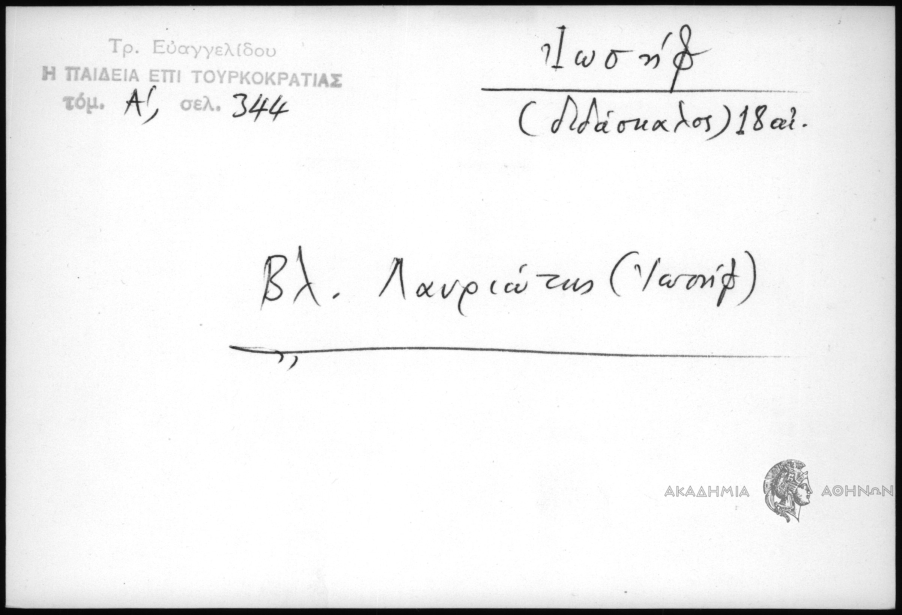 Τρ. Εὐαγγελίδου
Η ΠΑΙΔΕΙΑ ΕΠΙ ΤΟΥΡΚΟΚΡΑΤΙΑΣ
τόμ. Α', σελ. 344
Ἰωσήφ
(διδάσκαλος) 18 αἰ.
Βλ. Λαυριώτης (Ἰωσήφ)
ΑΚΑΔΗΜΙΑ ΑΘΗΝΩΝ